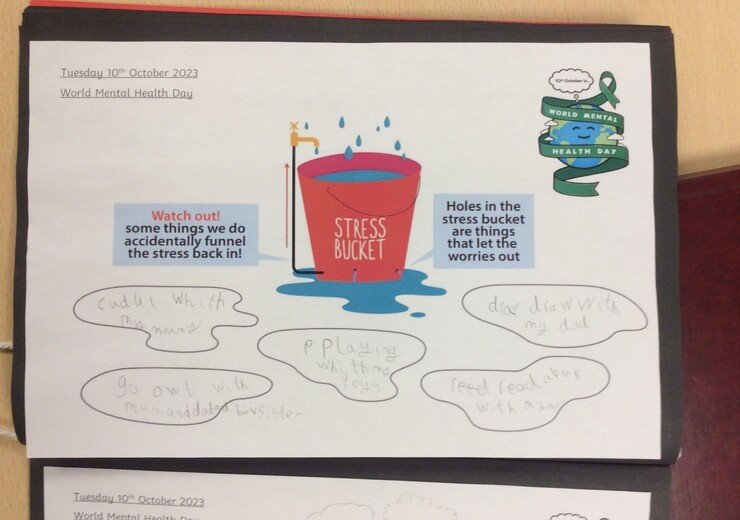 Tuesday 10th October 2023
World Mental Health Day
10th October is...
WORLD MENTAL
HEALTH DAY
Watch out!
some things we do
accidentally funnel
the stress back in!
STRESS
BUCKET
Holes in the
stress bucket
are things
that let the
worries out
cudul whith
my
draw draw with
my dad
p playing
whith my
toys
go owt with
mum and dad
sister
reed read a buk
with
Tuesday 10th October 2023
World Mental Health Day